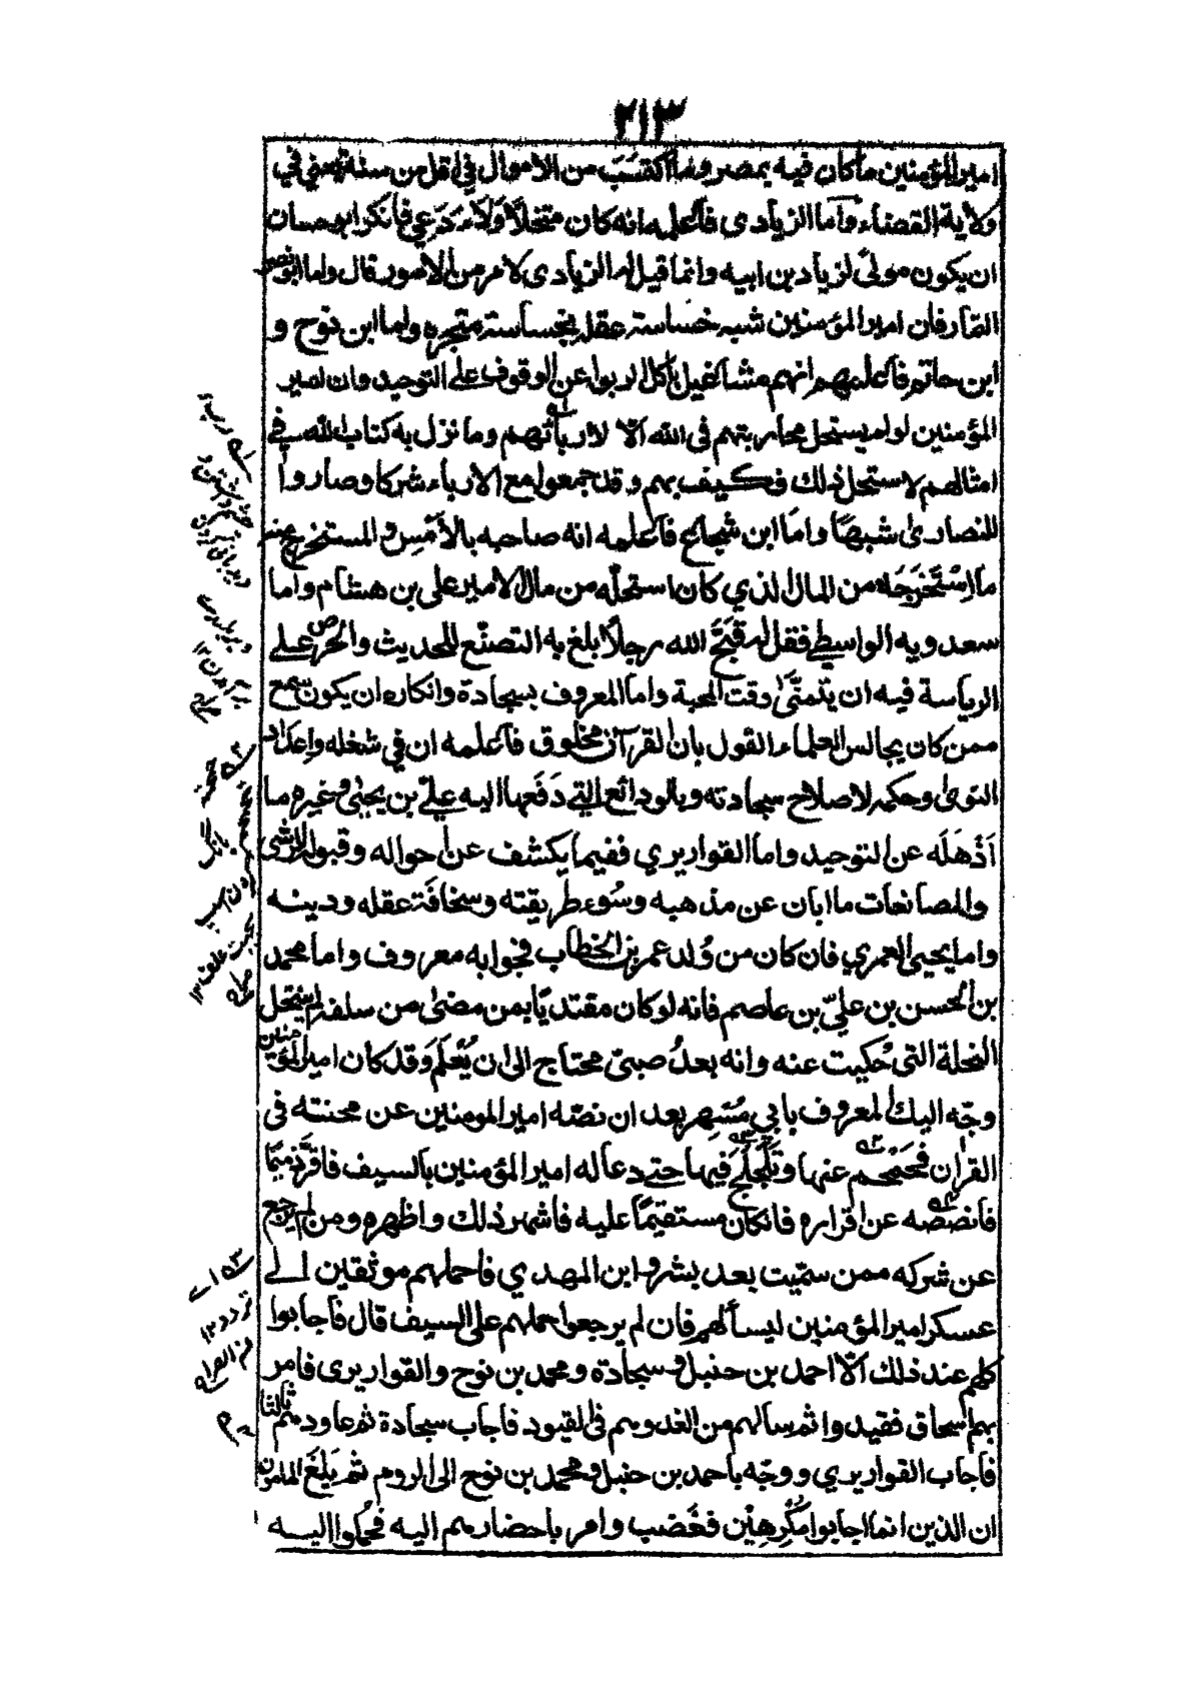 ٢١٣
امير المؤمنين ما كان فيه بمصر وما اكتسب من الاموال في اقل من سنة يعني في
ولاية القضاء واما الزيادى فاعلمه انه كان منتحلاً ولاء دَعِيٍ فانكر ابو حسان
ان يكون مولىً لزياد بن ابيه وانما قيل له الزيادى لامر من الامور قال واما ابو نصر
التمار فان امير المؤمنين شبه خساسة عقله بخساسة متجره واما ابن نوح و
ابن حاتم فاعلمهم انهم مشاغيل باكل الربوا عن الوقوف على التوحيد وان امير
المؤمنين لو لم يستحل محاربتهم فى الله الا لاربائهم وما نزل به كتاب الله في
امثالهم لاستحل ذلك فكيف بهم وقد جمعوا مع الارباء شركا وصاروا
للنصارىٰ شبهًا واما ابن شجاع فاعلمه انه صاحبه بالأمْسِ والمستخرج منه
ما اسْتَخْرَجَه من المال الذي كان استحلّه من مال الامير علي بن هشام واما
سعدويه الواسطي فقل له قبّحَ الله رجلاً بلغ به التصنّع للحديث والحرص على
الرياسة فيه ان يتمنّىٰ وقت المحنة واما المعروف بسجادة وانكاره ان يكون سمع
ممن كان يجالس العلماء القول بان القرآن مخلوق فاعلمه ان في شغله واعداد
النوى وحكه لاصلاح سجادته وبالودائع التي دَفَعها اليه عليّ بن يحيىٰ وغيره ما
اَذْهَلَه عن التوحيد واما القواريري ففيما يكشف عن احواله وقبوله الرشى
والمصانعات ما ابان عن مذهبه وسُوء طريقته وسخافَة عقله ودينه
واما يحيى العمري فان كان من وُلد عمر بن الخطاب فجوابه معروف واما محمد
بن الحسن بن عليّ بن عاصم فانه لو كان مقتديًا بمن مضىٰ من سلفه لم ينتحل
النحلة التى حُكيت عنه وانه بعدُ صبيّ محتاج الى ان يُعْلَم وقد كان امير المؤمنين
وجّه اليك المعروف بابي مُسْهِر بعد ان نصّه امير المومنين عن محنته فى
القران فجَمْجَم عنها وتَلَجْلَجَ فيها حتى دعا له امير المؤمنين بالسيف فاقرّ ذميمًا
فانصصه عن اقراره فان كان مستقيمًا عليه فاشهر ذلك واظهره ومن لم يرجع
عن شركه ممن سمّيت بعد بشر وابن المهدي فاحملهم موثقين الى
عسكر امير المؤمنين ليسألهم فان لم يرجعوا حملهم على السيف قال فاجابوا
كلهم عند ذلك الّا احمد بن حنبل وسجادة ومحمد بن نوح والقواريرى فامر
بهم اسحاق فقيدوا ثم سالهم من الغد وهم فى القيود فاجاب سجادة ثم عاودهم ثالثا
فاجاب القواريري ووجّه باحمد بن حنبل ومحمد بن نوح الى الروم ثم بَلَغَ المامون
ان الذين انما اجابوا مُكْرَهِيْن فغَضب وامر باحضارهم اليه فحُملوا اليه